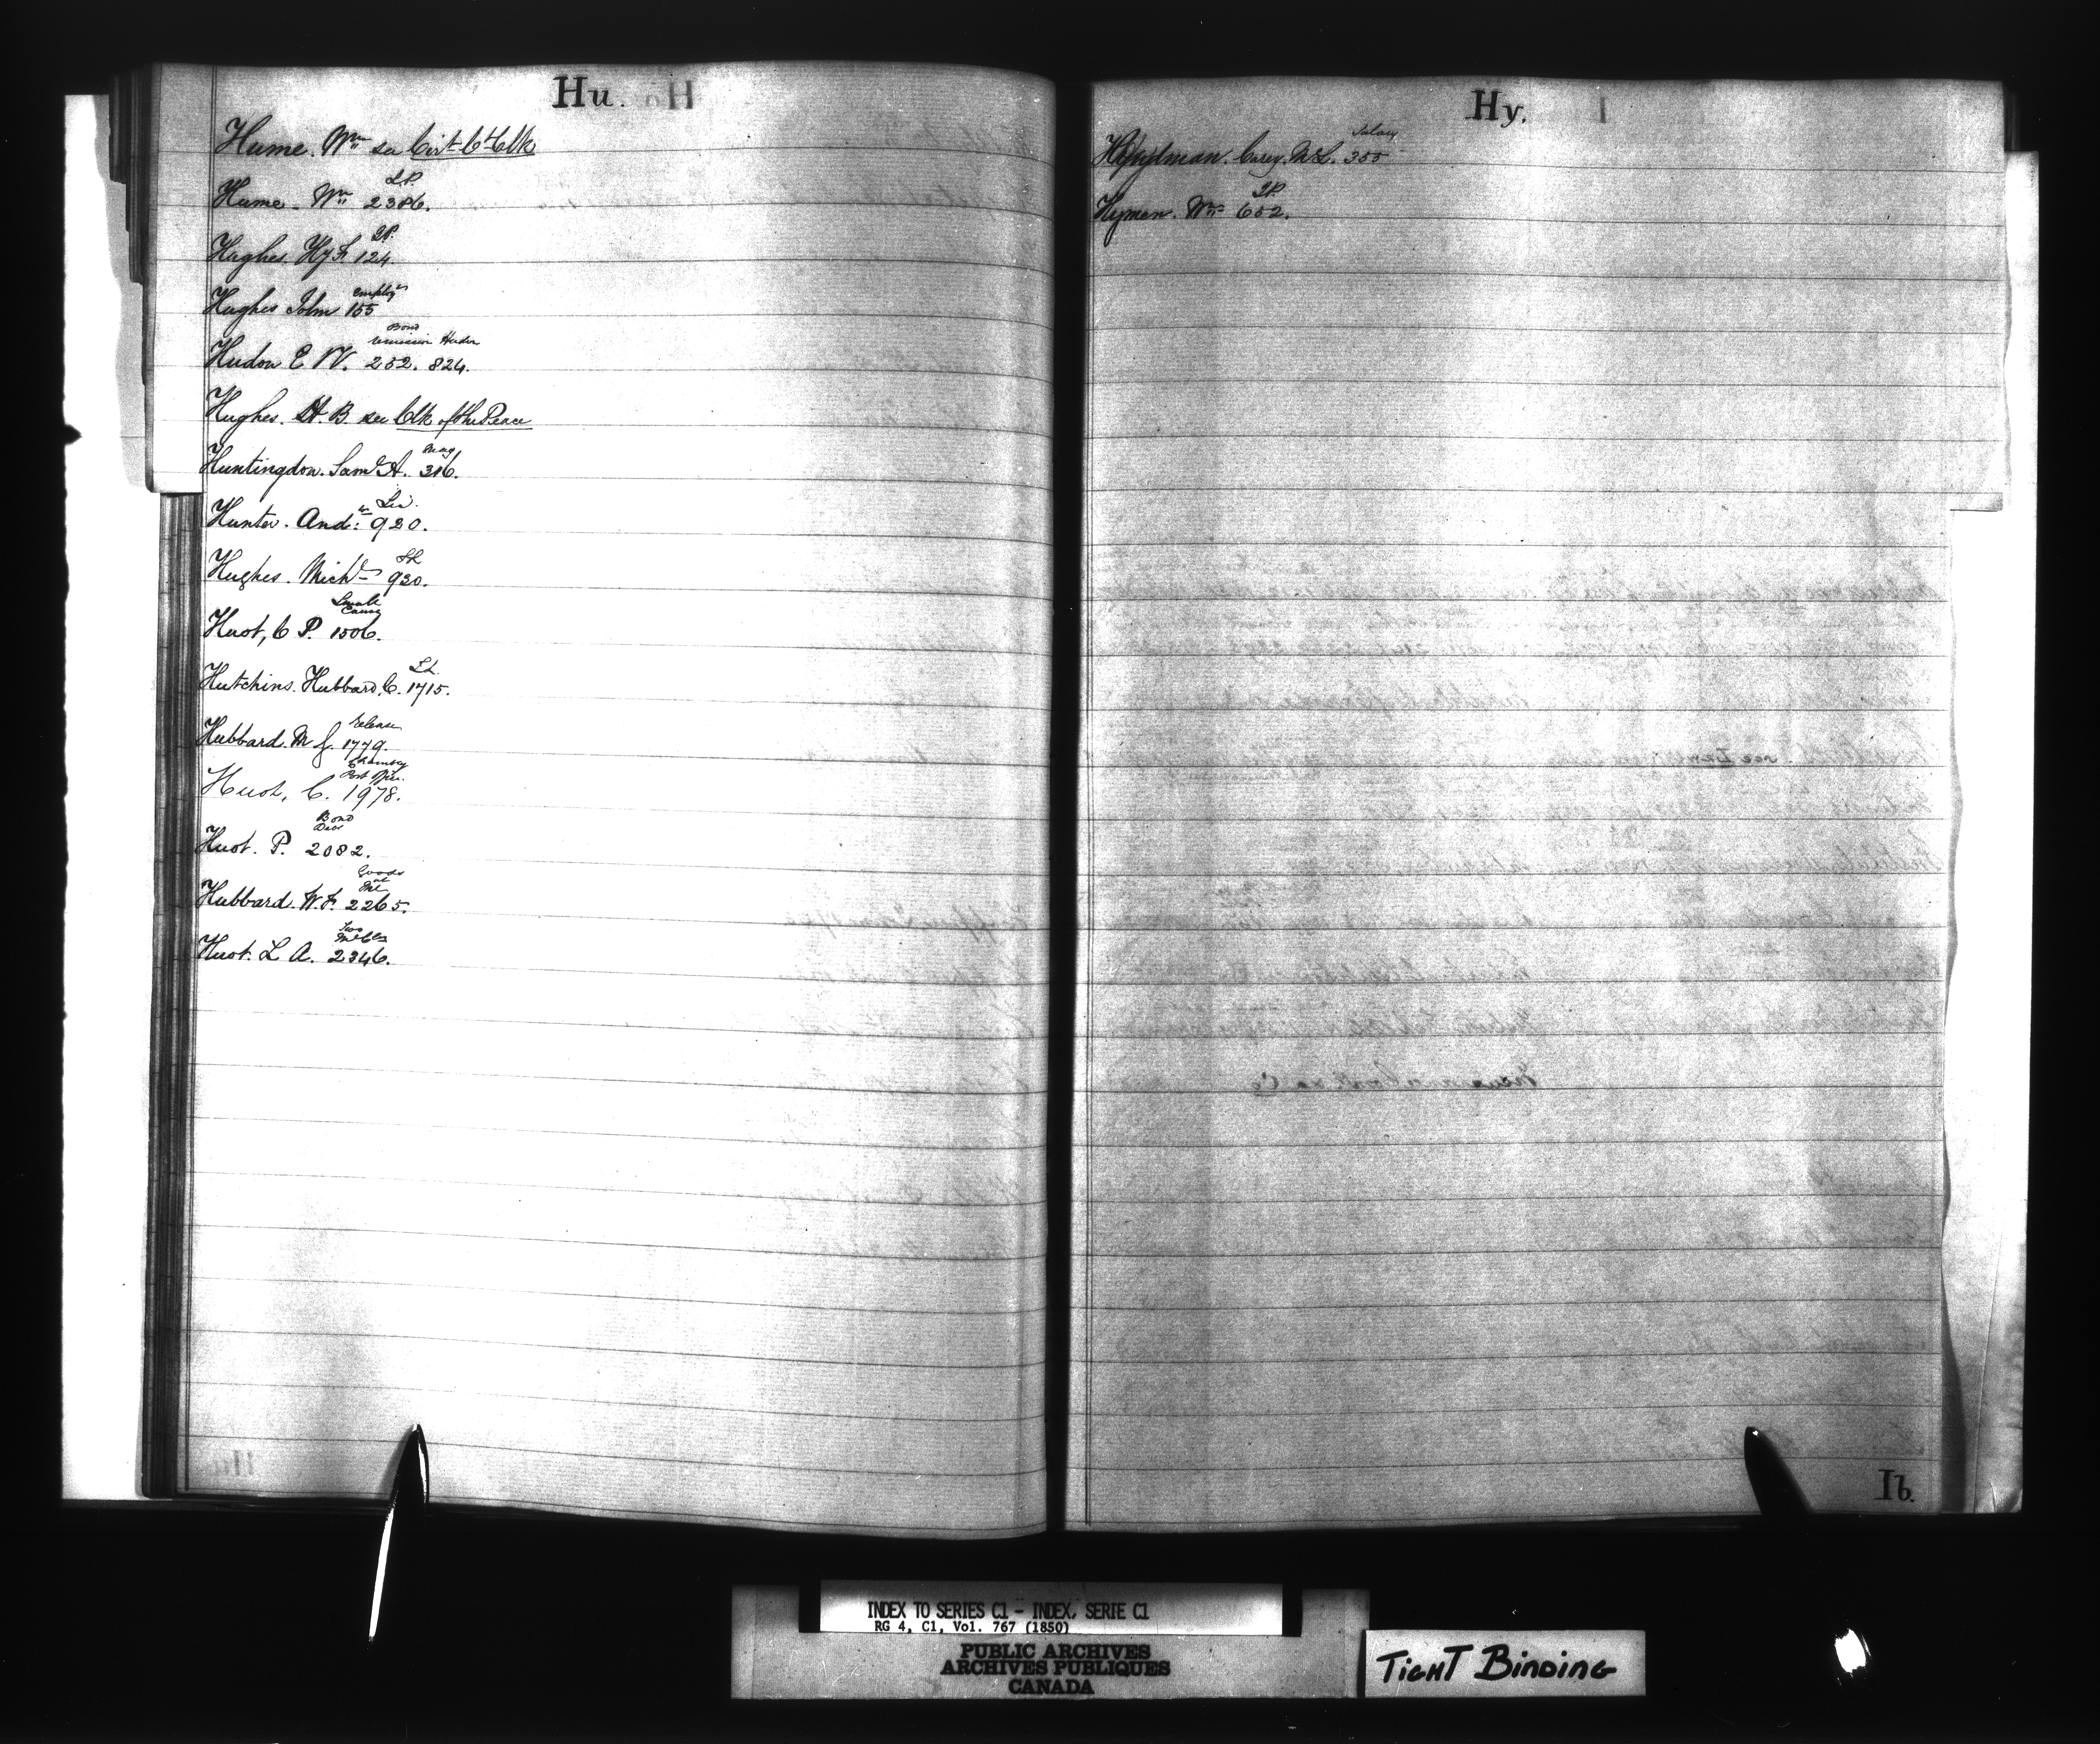 Hu.
Hume. Wm see Cirt Ct Clk
J.P.
Hume. Wm 2386.
J.P.
Hughes. Hy F. 124.
Employt
Hughes John 155
Bond
remission Hudon
Hudon E N. 252. 824.
Hughes. B. see Clk of the Peace
Mag
Huntingdon. Saml A. 316.
Lic.
Hunter. Andw 920.
Hughes. Michl 920.
Small
Causes
Huot, C P. 1506.
Hutchins. Hubbard. C. 1715.
release
Hubbard. M J. 1779.
Post Offi.
Huot, C. 1978.
Bond
Huot. P. 2082.
Goods
at
Hubbard. W. F. 2265.
Huot. L A. 2346.
Hy.
Salary
Hyndman. Carey. McL. 355
J.P.
Hyman. Wm 652.
Ib.
INDEX TO SERIES C1 - INDEX, SERIE C1
RG 4, C1, Vol. 767 (1850)
PUBLIC ARCHIVES
ARCHIVES PUBLIQUES
CANADA
TIGHT BINDING